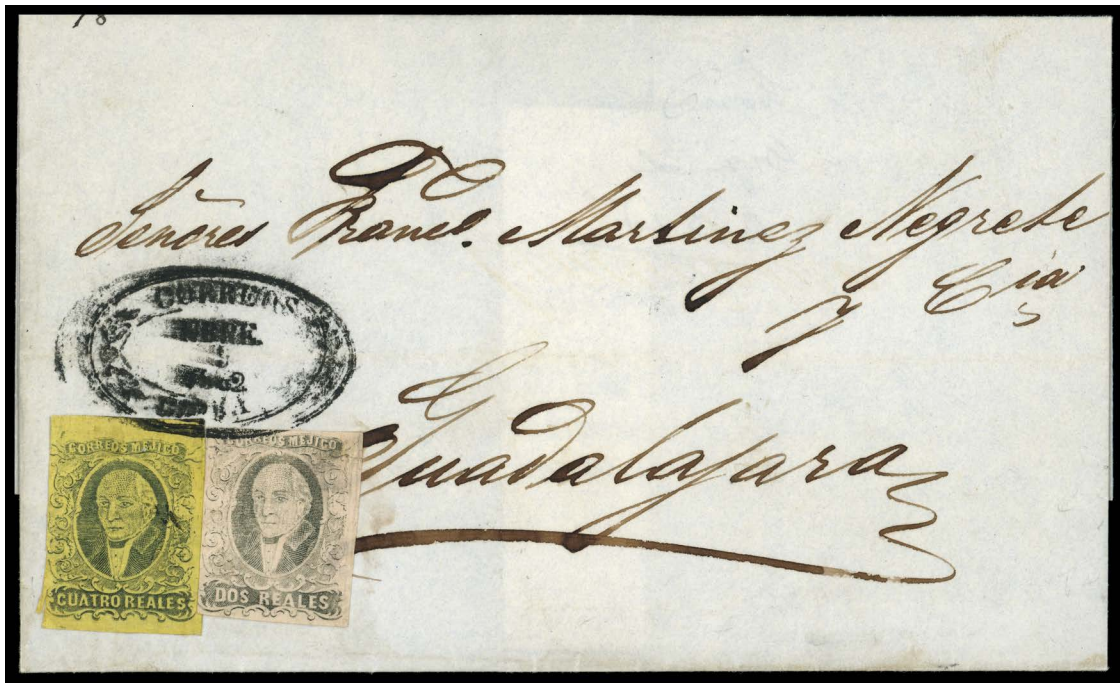 78
Señores Franco. Martinez Negrete
y Cia
CORREOS
Guadalajara
CORREOS MEJICO
CUATRO REALES
CORREOS MEJICO
DOS REALES